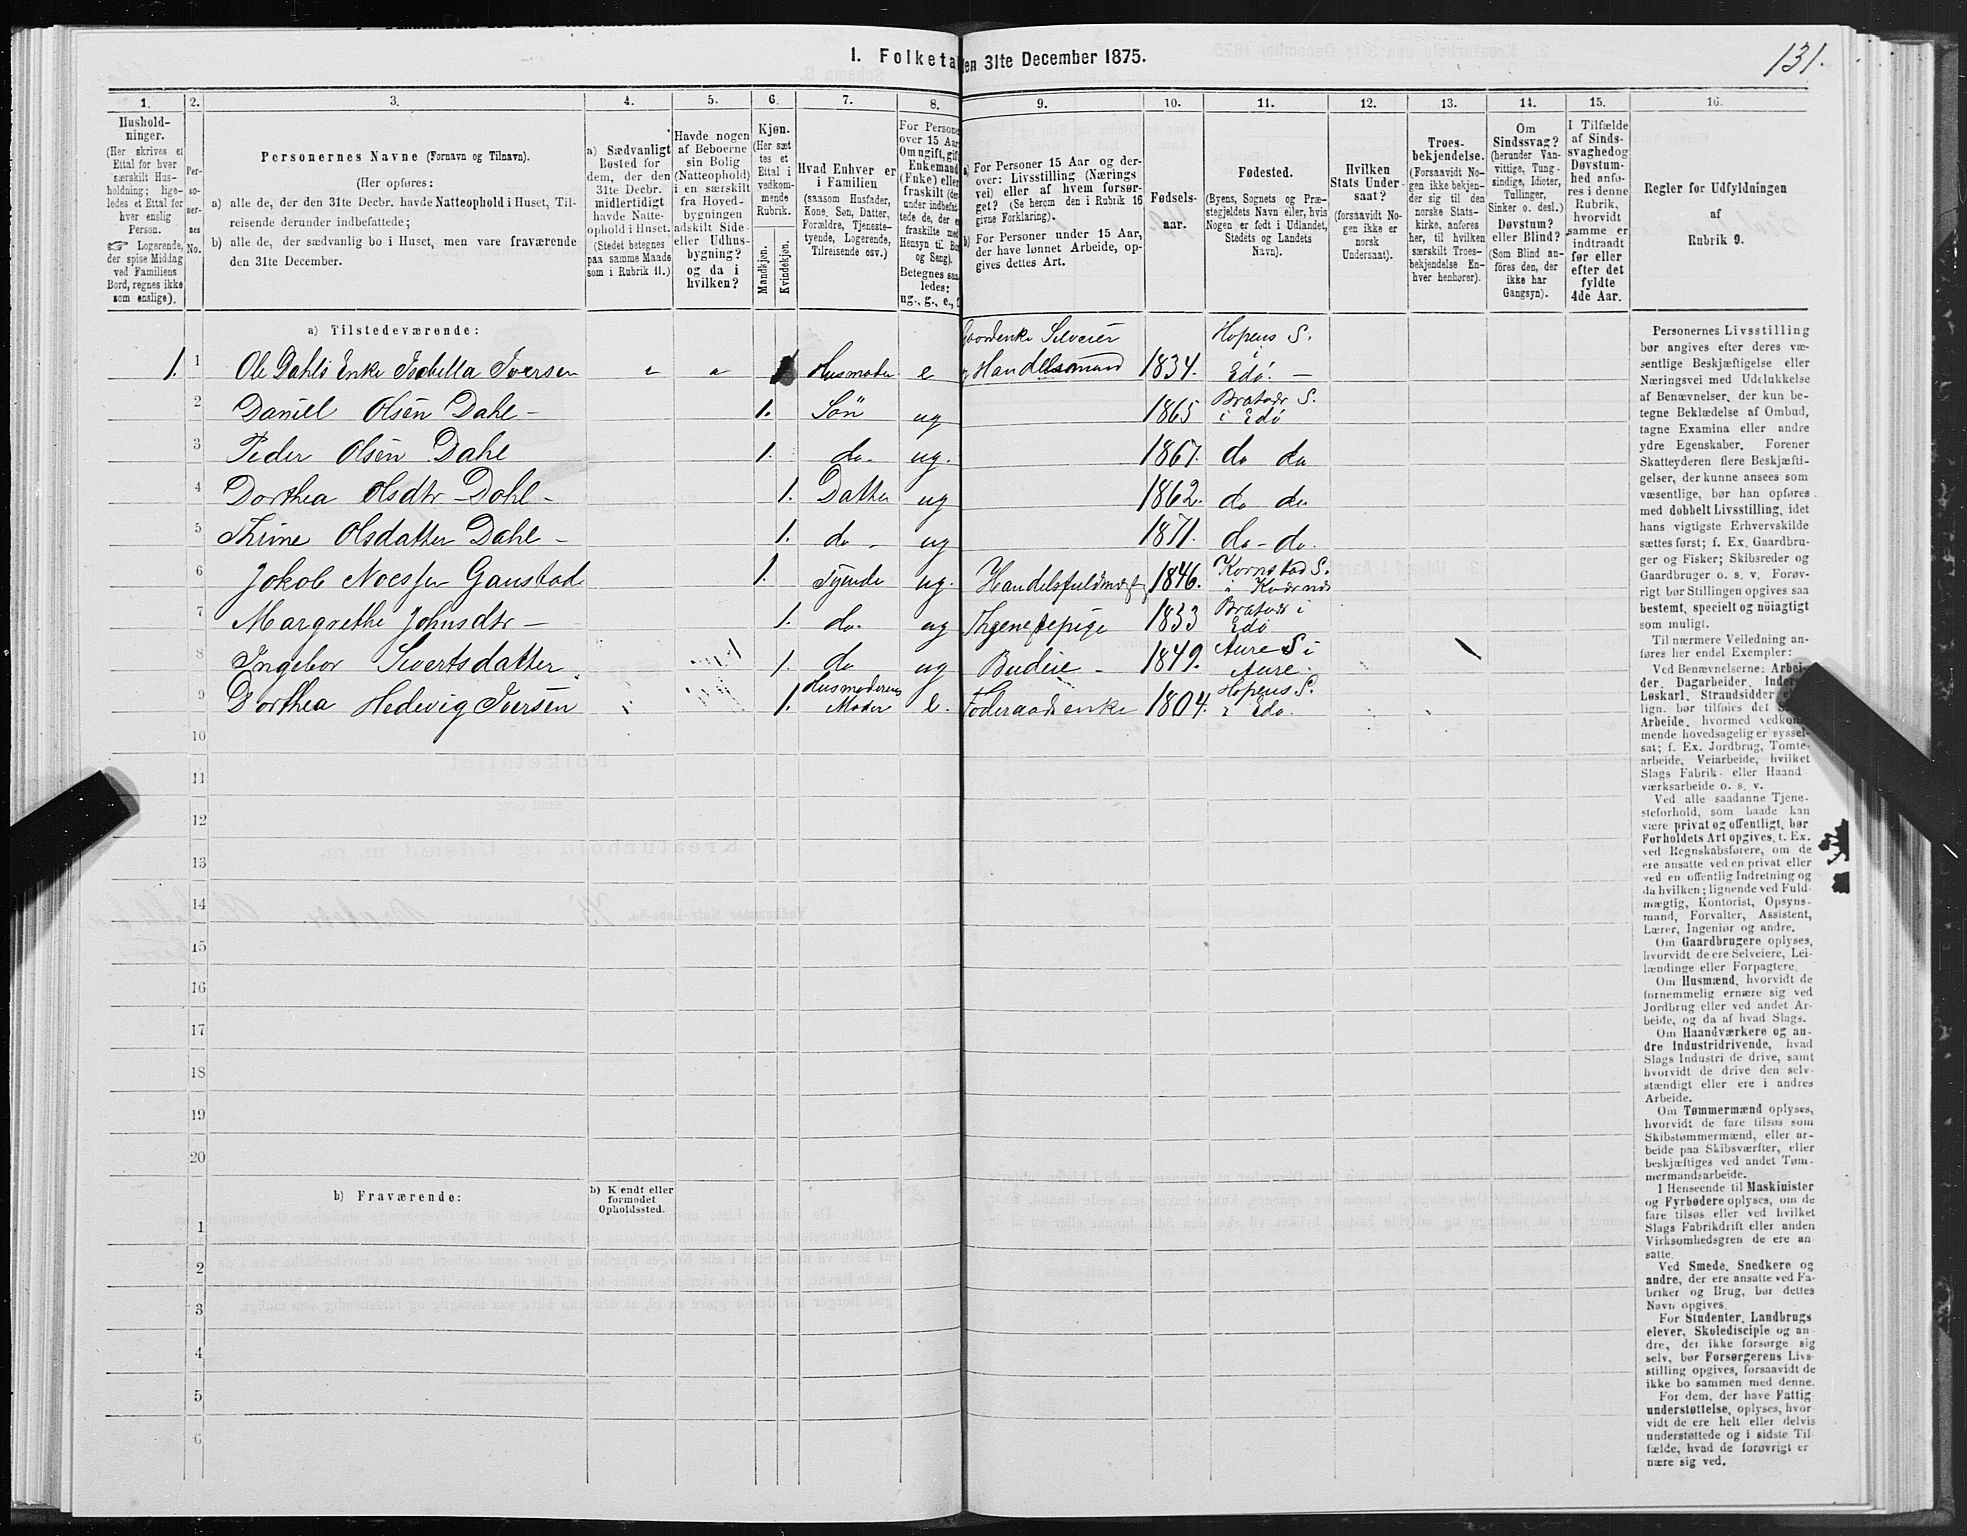 1. Folketa
den 31te December 1875.
131.
1.
2.
3.
4.
5.
6.
7.
8.
9.
10.
11.
12.
13.
14.
15.
16.
Hushold-
ninger.
(Her skrives et
Ettal for hver
særskilt Hus-
holdning; lige-
ledes et Ettal for
hver enslig
Person.
☞ Logerende,
der spise Middag
ved Familiens
Bord, regnes ikke
som enslige).
Per-
so-
ner-
nes
No.
Personernes Navne (Fornavn og Tilnavn).
(Her opføres:
a) alle de, der den 31te Decbr. havde Natteophold i Huset, Til-
reisende derunder indbefattede;
b) alle de, der sædvanlig bo i Huset, men vare fraværende
den 31te December.
a) Sædvanligt
Bosted for
dem, der den
31te Decbr.
midlertidigt
havde Natte-
ophold i Huset.
(Stedet betegnes
paa samme Maade
som i Rubrik 11.)
Havde nogen
af Beboerne
sin Bolig
(Natteophold)
i en særskilt
fra Hoved-
bygningen
adskilt Side-
eller Udhus-
bygning?
og da i
hvilken?
Kjøn.
(Her sæt-
tes et
Ettal i
vedkom-
mende
Rubrik.
Mandkjøn.
Kvindekjøn.
Hvad Enhver er
i Familien
(saasom Husfader,
Kone, Søn, Datter,
Forældre, Tjeneste-
tyende, Logerende,
Tilreisende osv.)
For Persone
over 15 Aar
Om ugift, gif
Enkemand
(Enke) elle
fraskilt (de
under indbefat-
tede de, der e
fraskilte med
Hensyn til Bo
og Seng).
Betegnes saa
ledes:
ug., g., e., f
a) For Personer 15 Aar og der-
over: Livsstilling (Nærings
vei) eller af hvem forsør-
get? (Se herom den i Rubrik 16
givne Forklaring).
b) For Personer under 15 Aar,
der have lønnet Arbeide, op-
gives dettes Art.
Fødsels-
aar.
Fødested.
(Byens, Sognets og Præ-
stegjeldets Navn eller, hvis
Nogen er født i Udlandet,
Stedets og Landets
Navn).
Hvilken
Stats Under-
saat?
(forsaavidt No-
gen ikke er
norsk
Undersaat).
Troes-
bekjendelse.
(Forsaavidt No-
gen ikke bekjen-
der sig til den
norske Stats-
kirke, anføres
her, til hvilken
særskilt Troes-
bekjendelse En-
hver henhører).
Om
Sindssvag?
(herunder Van-
vittige, Tung-
sindige, Idioter,
Tullinger,
Sinker o. desl.)
Døvstum?
eller Blind?
(Som Blind an-
føres den, der
ikke har
Gangsyn).
I Tilfælde
af Sinds-
svaghed og
Døvstum-
hed anfø-
res i denne
Rubrik,
hvorvidt
samme er
indtraadt
før eller
efter det
fyldte
4de Aar.
Regler for Udfyldningen
af
Rubrik 9.
a) Tilstedeværende:
Gaardenke Selveier Hopens S.
1. 1 Ole Dahls Enke Isabella Iversen 1 Husmoder e og Handelsmand 1834. i Edø. —
2 Daniel Olsen Dahl — 1. Søn ug 1865 Bratvær S. i Edø
3 Peder Olsen Dahl 1. do. ug. 1867. do do
4 Dorthea Olsdtr — Dahl — 1. Datter ug 1862. do do
5 Thrine Olsdatter Dahl — 1. do — ug 1871. do — do.
6 Jakob Gaustad 1. Tyende ug. Handelsfuldmægtig 1846. Kornstad S. i Kvernæs
7 Margrethe Johnsdtr — 1. do. ug Thjenestepige 1833 Bratvær i Edø
8 Ingebor Sivertsdatter 1. do ug Budeie — 1849. Aure S i Aure
9 Dorthea Hedevig Iversen 1. Husmoderens Moder e. Føderaadsenke 1804. Hopens S. i Edø.
10
11
12
13
14
15
16
17
18
19
20
b) Fraværende:
b) Kjendt eller
formodet
Opholdssted.
1
2
3
4
5
6
Personernes Livsstilling
bør angives efter deres væ-
sentlige Beskjæftigelse eller
Næringsvei med Udelukkelse
af Benævnelser, der kun be-
tegne Beklædelse af Ombud,
tagne Examina eller andre
ydre Egenskaber. Forener
Skatteyderen flere Beskjæfti-
gelser, der kunne ansees som
væsentlige, bør han opføres
med dobbelt Livsstilling, idet
hans vigtigste Erhvervskilde
sættes først; f. Ex. Gaardbru-
ger og Fisker; Skibsreder og
Gaardbruger o. s. v. Forøv-
rigt bør Stillingen opgives saa
bestemt, specielt og nøiagtigt
som muligt.
Til nærmere Veiledning an-
føres her endel Exempler:
Ved Benævnelserne: Arbei-
der, Dagarbeider, Inders
Løskarl, Strandsidder
lign. bør tilføies det
Arbeide, hvormed vedkom-
mende hovedsagelig er syssel-
sat; f. Ex. Jordbrug, Tomte-
arbeide, Veiarbeide, hvilket
Slags Fabrik- eller Haand
værksarbeide o. s. v.
Ved alle saadanne Tjene-
steforhold, som baade kan
være privat og offentligt, bør
Forholdets Art opgives, t. Ex.
ved Regnskabsførere, om de
ere ansatte ved en privat eller
ved en offentlig Indretning og
da hvilken; lignende ved Fuld-
mægtig, Kontorist, Opsyns-
mand, Forvalter, Assistent,
Lærer, Ingeniør og andre.
Om Gaardbrugere oplyses,
hvorvidt de ere Selveiere, Lei-
lændinge eller Forpagtere.
Om Husmænd, hvorvidt de
fornemmelig ernære sig ved
Jordbrug eller ved andet Ar-
beide, og da af hvad Slags.
Om Haandværkere og an-
dre Industridrivende, hvad
Slags Industri de drive, samt
hvorvidt de drive den selv-
stændigt eller ere i andres
Arbeide.
Om Tømmermænd oplyses,
hvorvidt de fare tilsøs som
Skibstømmermænd, eller ar-
beide paa Skibsværfter, eller
beskjæftiges ved andet Tøm-
mermandsarbeide.
I Henseende til Maskinister
og Fyrbødere oplyses, om de
fare tilsøs eller ved hvilket
Slags Fabrikdrift eller anden
Virksomhedsgren de ere an-
satte.
Ved Smede, Snedkere og
andre, der ere ansatte ved Fa-
briker og Brug, bør dettes
Navn opgives.
For Studenter, Landbrugs
elever, Skoledisciple og an-
dre, der ikke forsørge sig
selv, bør Forsørgerens Livs-
stilling opgives, forsaavidt de
ikke bo sammen med denne.
For dem, der have Fattig
understøttelse, oplyses, hvor-
vidt de ere helt eller delvis
understøttede og i sidste Til
fælde, hvad de forøvrigt er
nære sig ved.